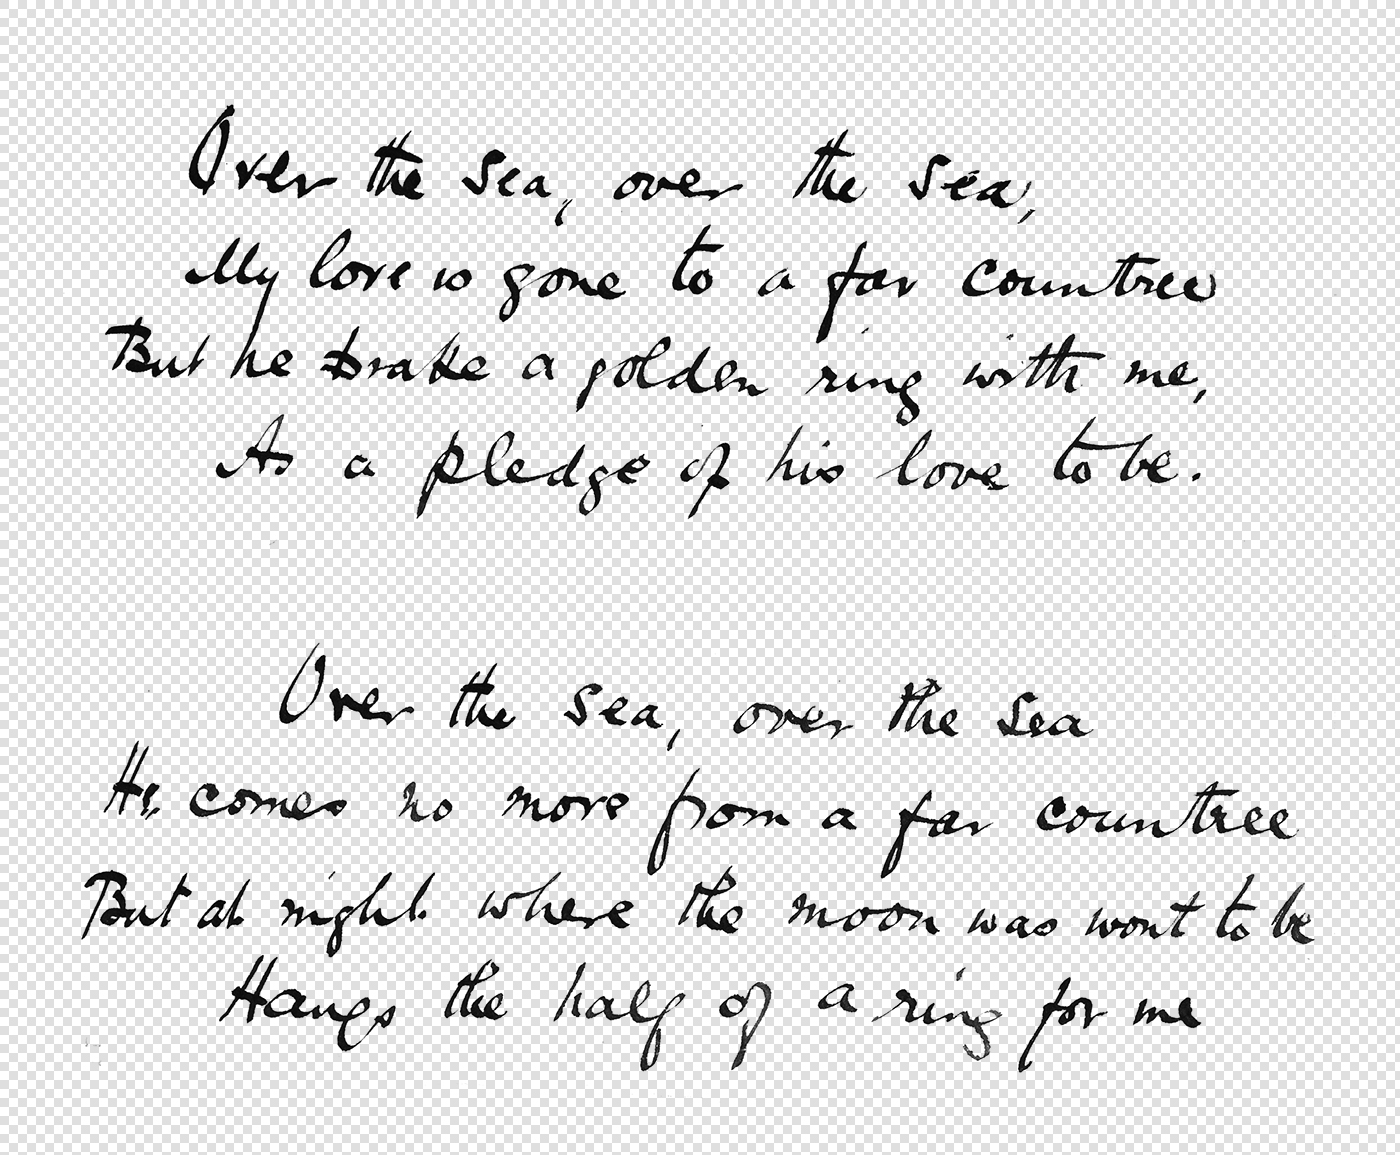 Over the sea, over the sea,
My love is gone to a far countree
But he brake a golden ring with me,
As a pledge of his love to be.
Over the sea, over the sea
He comes no more from a far countree
But at night where the moon was wont to be
Hangs the half of a ring for me